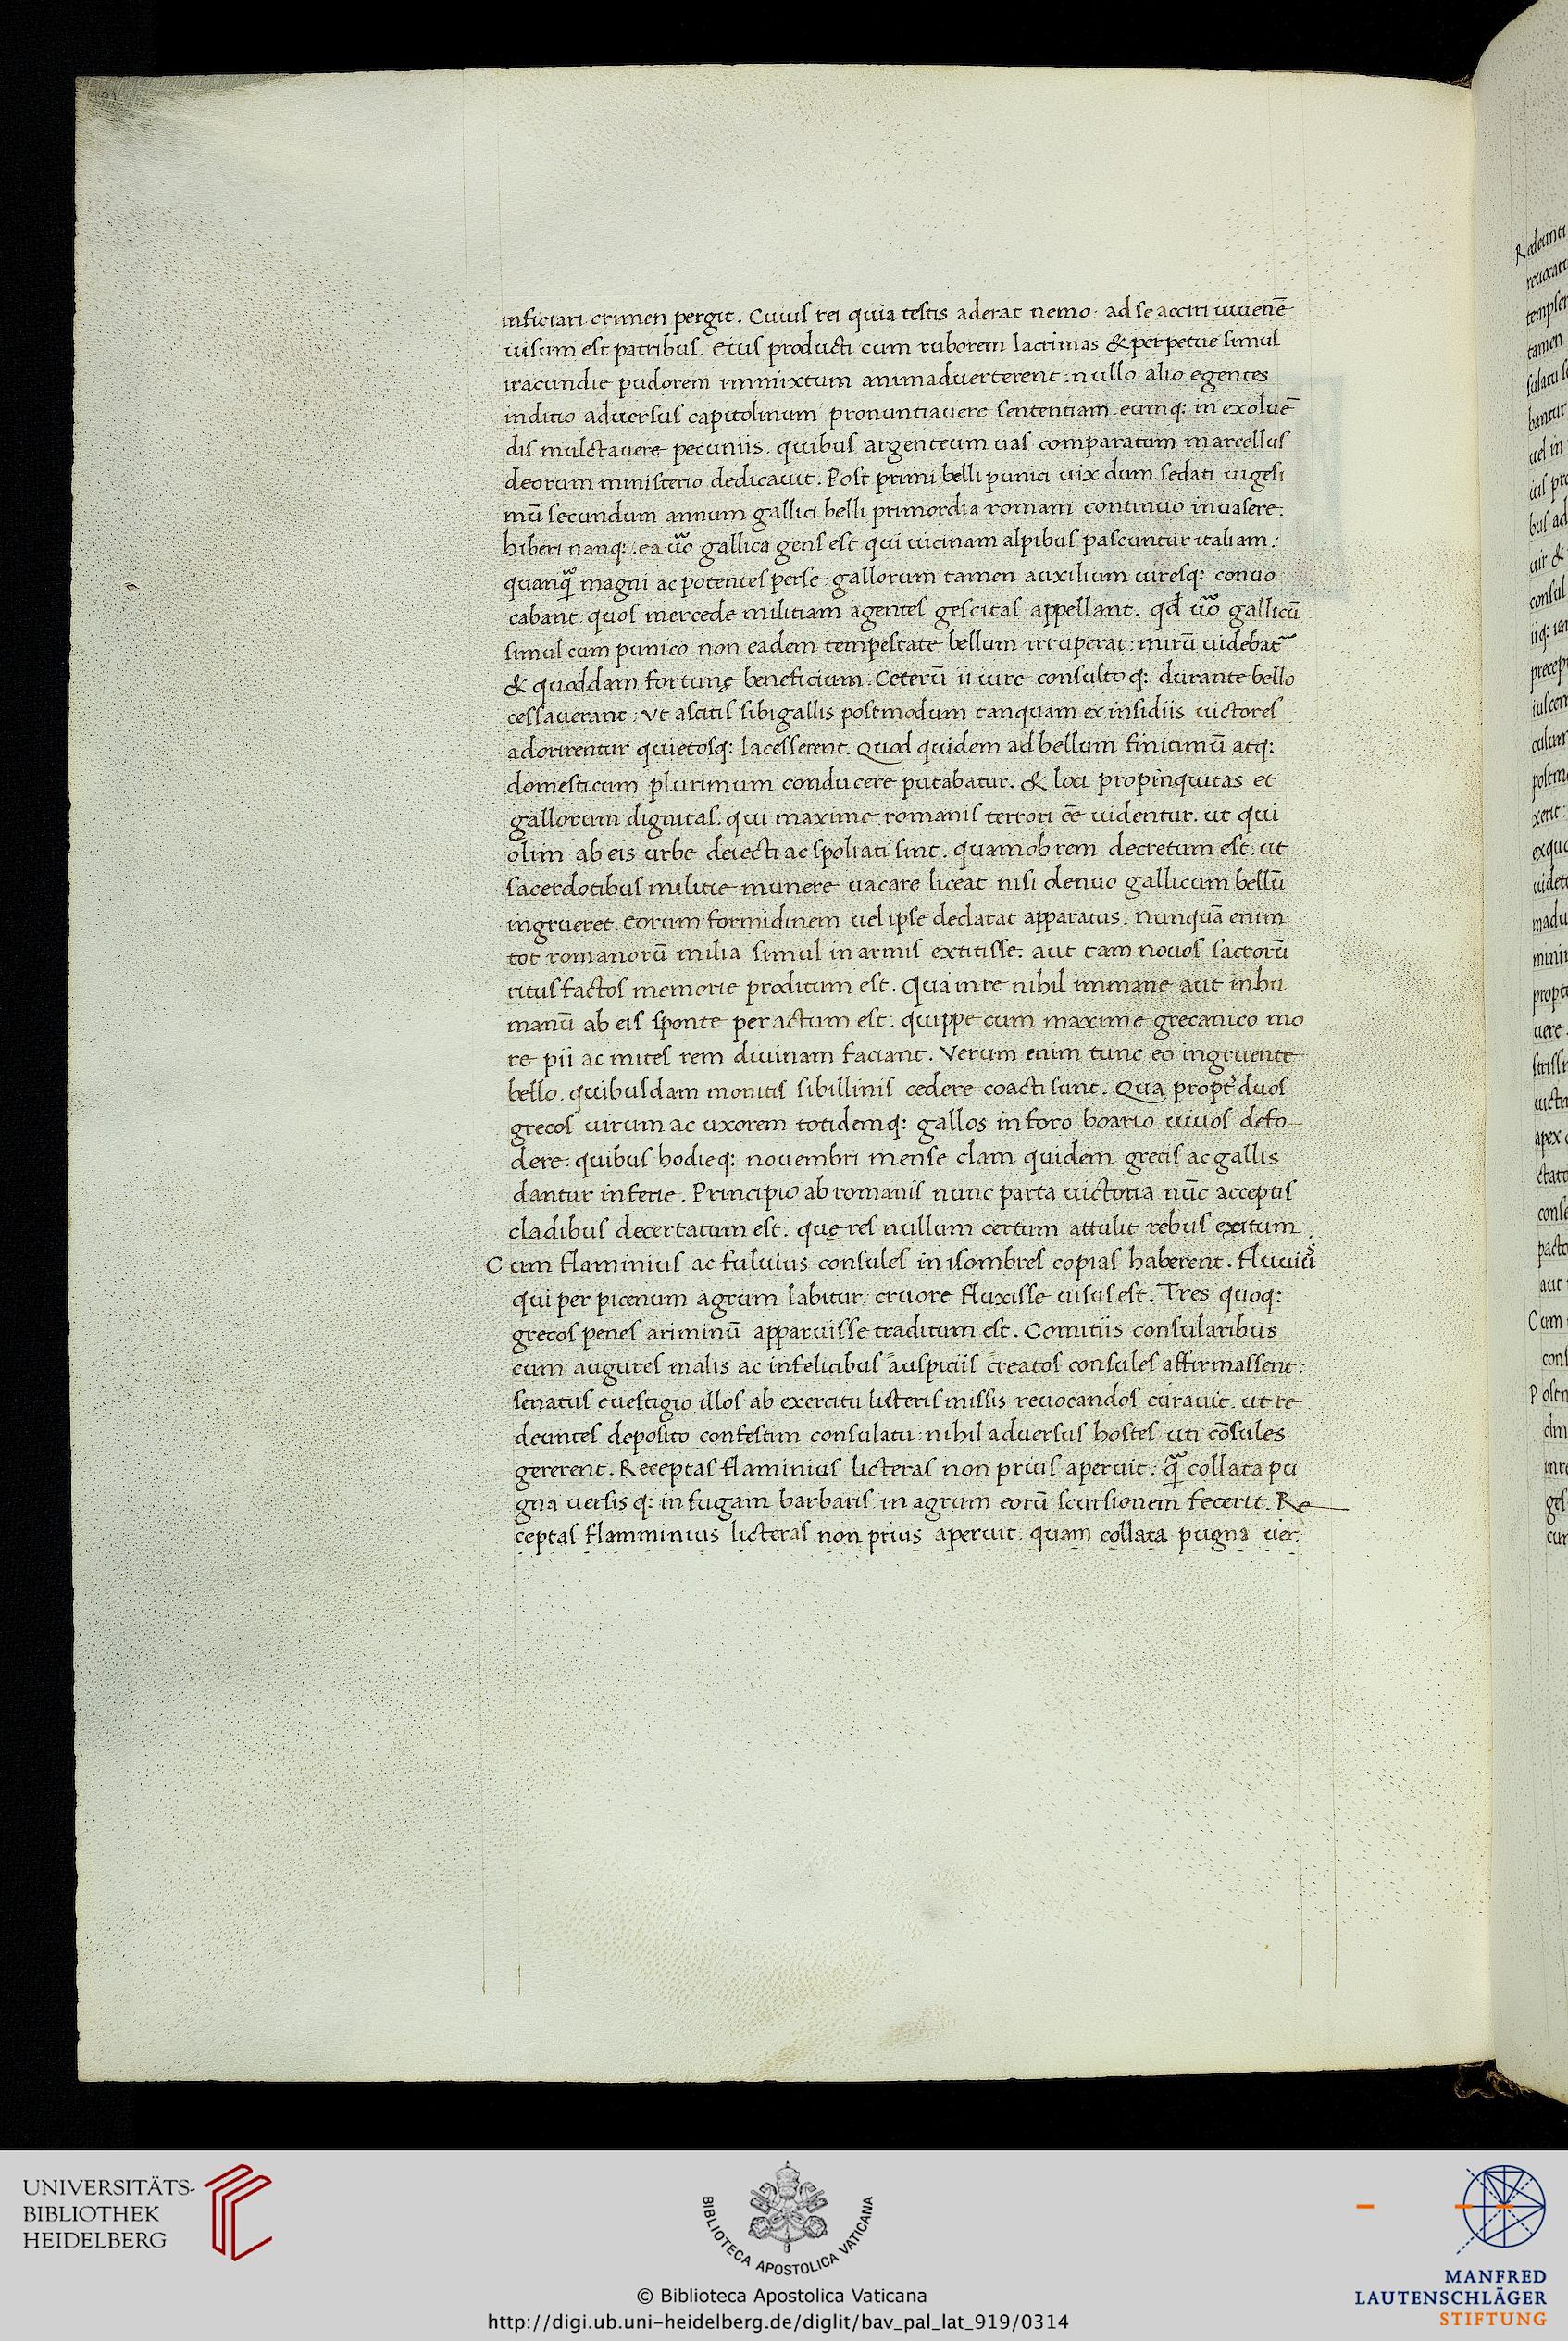 inficiari crimen pergit. Cuius rei quia testis aderat nemo. ad se acciri iuuenē
uisum est patribus. Eius producti cum ruborem lacrimas & perpetue simul
iracundie pudorem immixtum animaduerterent: nullo alio egentes
inditio aduersus capitolinum pronuntiauere sententiam. eumq: in exoluē
dis mulctauere pecuniis. quibus argenteum uas comparatum marcellus
deorum ministerio dedicauit. Post primi belli punici uix dum sedati uigesi
mū secundum annum gallici belli primordia romam continuo inuasere.
hiberi nanq:. ea ũo gallica gens est qui uicinam alpibus pascuntur italiam:
quanq̃ magni ac potentes perse gallorum tamen auxilium uiresq: conuo
cabant. quos mercede militiam agentes gescitas appellant. qđ ũo gallicū
simul cum punico non eadem tempestate bellum irruperat: mirū uidebat̃
& quoddam fortunę beneficium. Ceterū ii iure consulto q: durante bello
cessauerant: Vt ascitis sibi gallis postmodum tanquam ex insidiis uictores
adorirentur quietosq: lacesserent. Quod quidem ad bellum finitimū atq:
domesticum plurimum conducere putabatur. & loci propinquitas et
gallorum dignitas. qui maxime romanis terrori eē uidentur. ut qui
olim ab eis urbe deiecti ac spoliati sint. quamobrem decretum est: ut
sacerdotibus militie munere uacare liceat nisi denuo gallicum bellū
ingrueret. Eorum formidinem uel ipse declarat apparatus. nunquā enim
tot romanorū milia simul in armis extitisse: aut tam nouos sacrorū
ritus factos memorie proditum est. Qua in re nihil immane aut inhu
manū ab eis sponte peractum est. quippe cum maxime grecanico mo
re pii ac mites rem diuinam faciant. Verum enim tunc eo ingruente
bello. quibusdam monitis sibillinis cedere coacti sunt. Qua propt̃ duos
grecos uirum ac uxorem totidemq: gallos in foro boario uiuos defo
dere. quibus hodieq: nouembri mense clam quidem grecis ac gallis
dantur inferie. Principio ab romanis nunc parta uictoria nūc acceptis
cladibus decertatum est. quę res nullum certum attulit rebus exitum.
Cum flaminius ac fuluius consules in isombres copias haberent. fluuiū
qui per picenum agrum labitur cruore fluxisse uisus est. Tres quoq:
grecos penes ariminū apparuisse traditum est. Comitiis consularibus
cum augures malis ac infelicibus auspiciis creatos consules affirmassent:
senatus euestigio illos ab exercitu licteris missis reuocandos curauit. ut re
deuntes deposito confestim consulatu: nihil aduersus hostes uti cōsules
gererent. Receptas flaminius licteras non prius aperuit: q̃ collata pu
gna uersis q: in fugam barbaris in agrum eorū scursionem fecerit. Re
ceptas flamminius licteras non prius aperuit. quam collata pugna uer.
UNIVERSITÄTS-
BIBLIOTHEK
HEIDELBERG
BIBLIOTECA APOSTOLICA VATICANA
© Biblioteca Apostolica Vaticana
http://digi.ub.uni-heidelberg.de/diglit/bav_pal_lat_919/0314
MANFRED
LAUTENSCHLÄGER
STIFTUNG